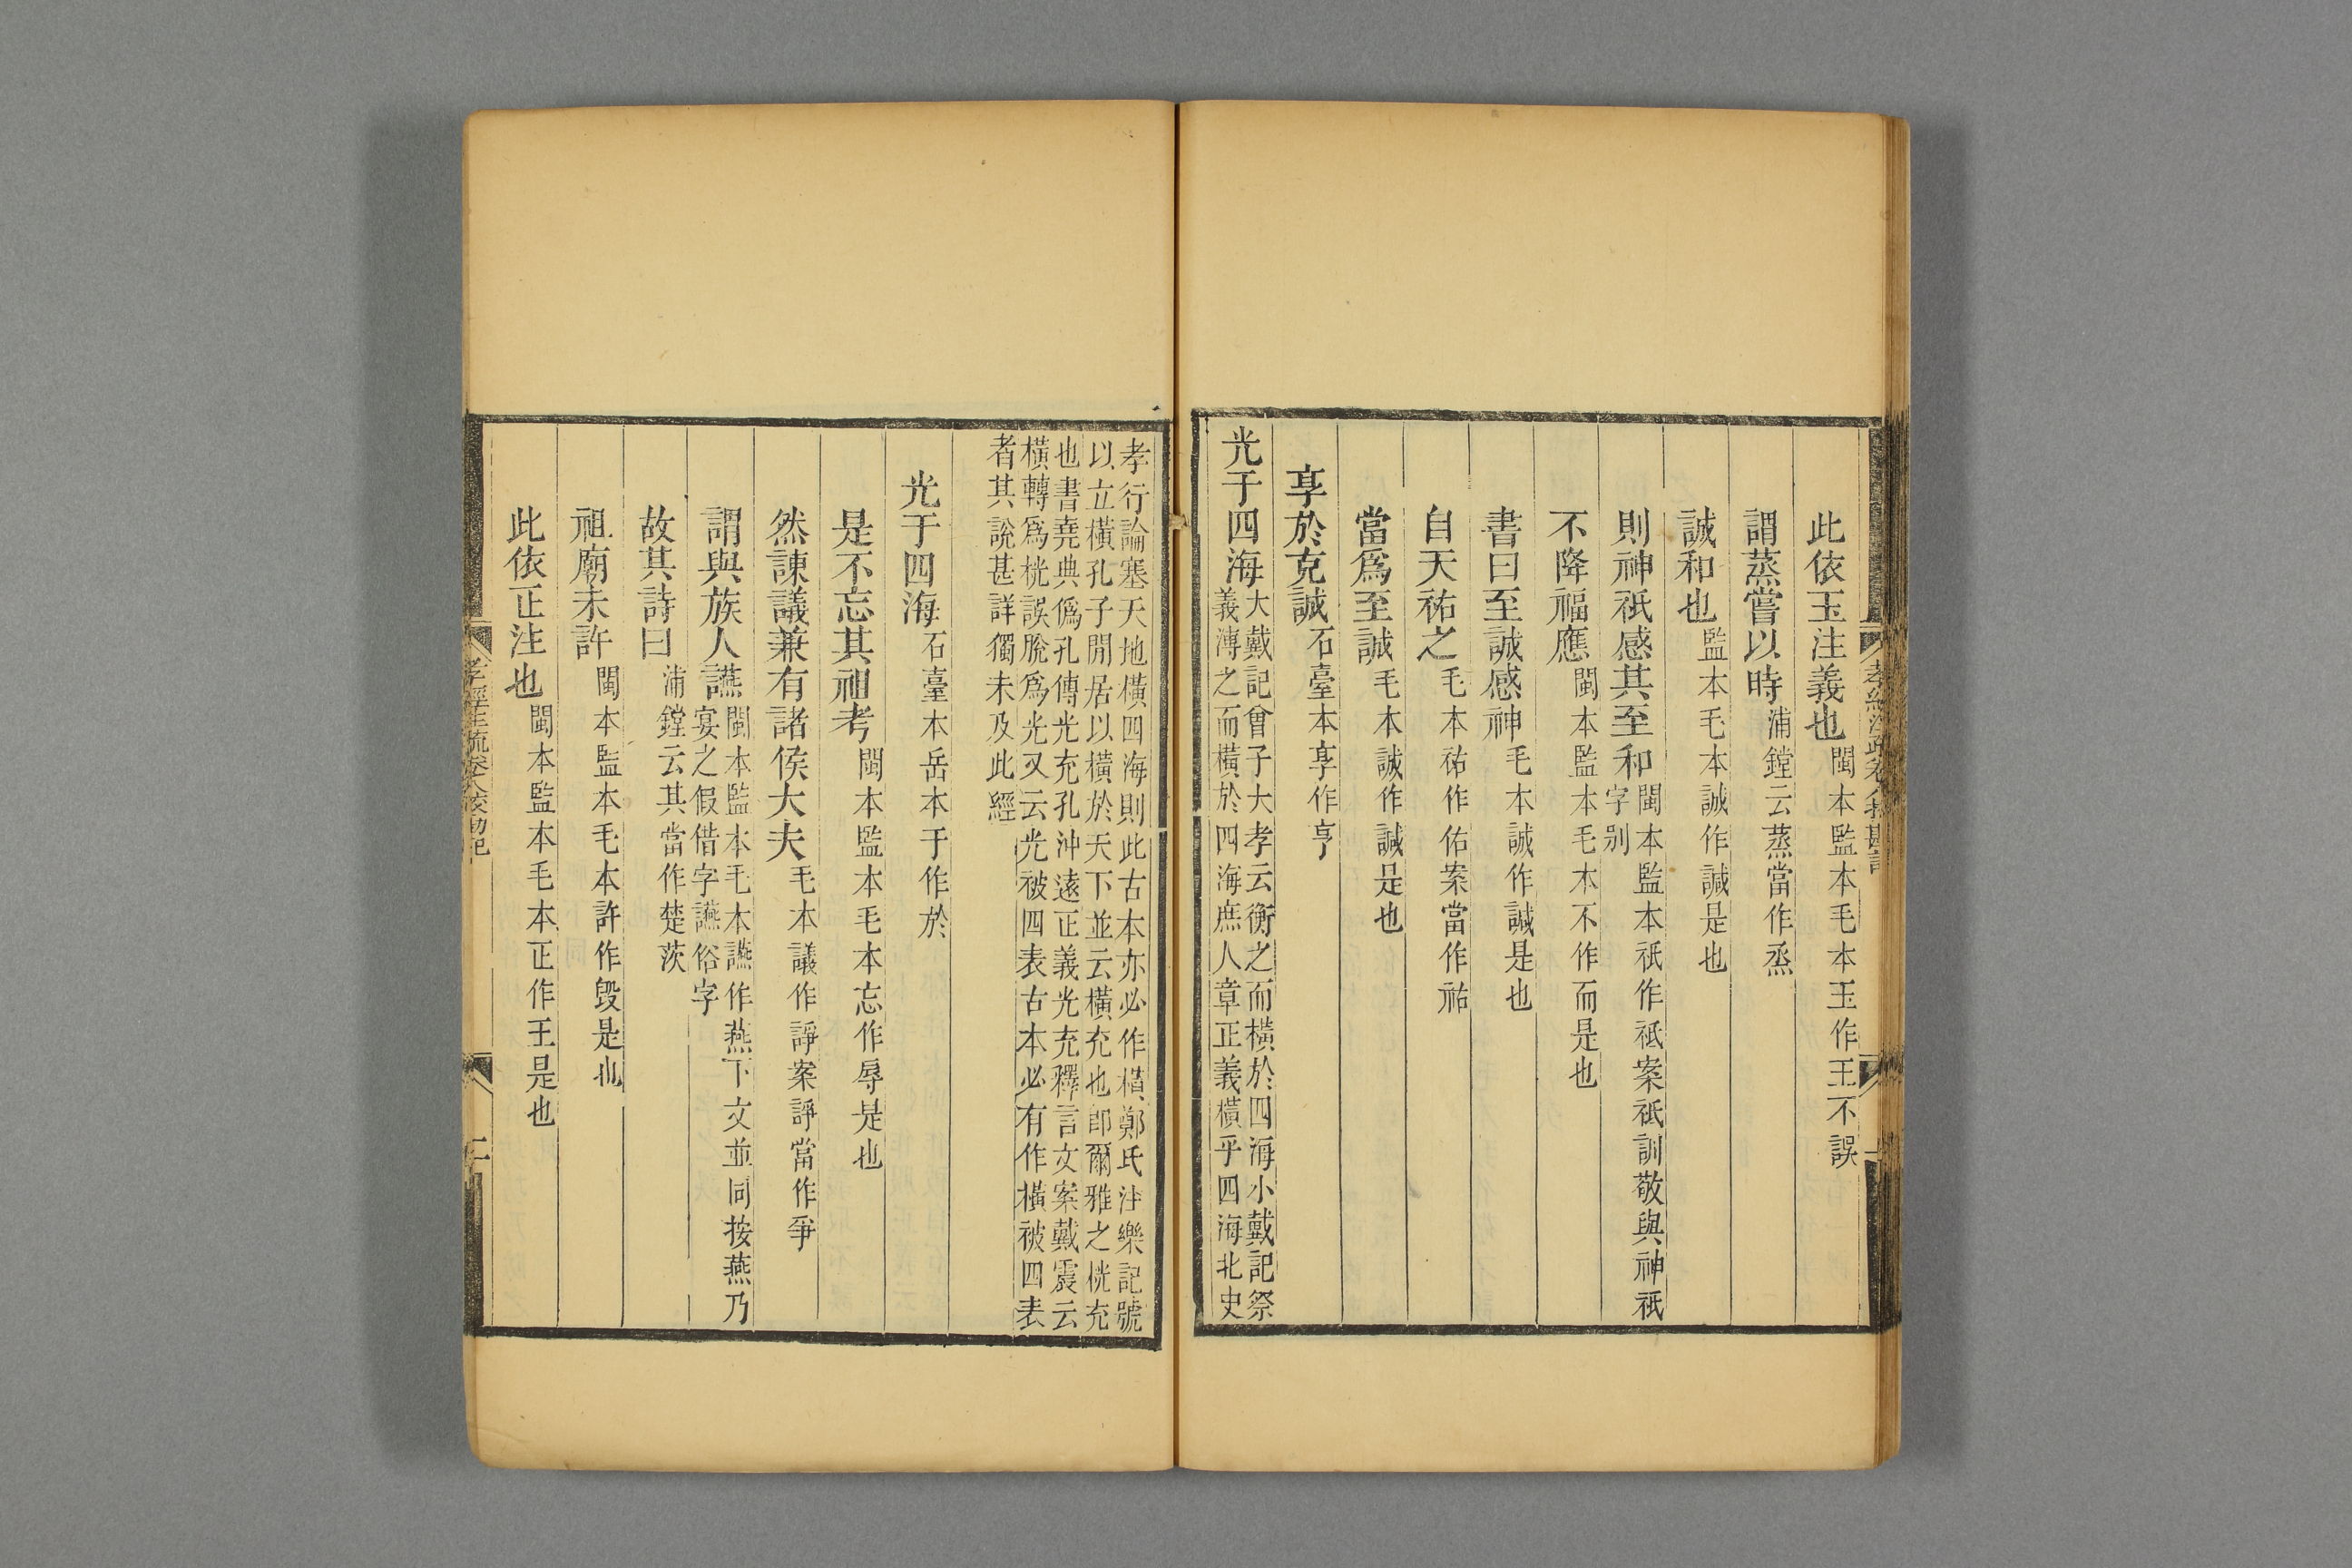 此依玉注義也閩本監本毛本玉作王不誤
謂蒸嘗以時浦鏜云蒸當作烝
誠和也監本毛本誠作諴是也
則神祇感其至和閩本監本祇作祗案祗訓敬與神祇
字別
不降福應閩本監本毛本不作而是也
書曰至誠感神毛本誠作諴是也
自天祐之毛本祐作佑案當作祐
當爲至誠毛本誠作諴是也
享於克誠石臺本享作亨
光于四海大戴記曾子大孝云衡之而橫於四海小戴記祭
義溥之而橫於四海庶人章正義橫乎四海北史
孝行論塞天地橫四海則此古本亦必作橫鄭氏注樂記號
以立橫孔子閒居以橫於天下並云橫充也卽爾雅之桄充
也書堯典僞孔傳光充孔沖遠正義光充釋言文案戴震云
橫轉爲桄誤脫爲光又云光被四表古本必有作橫被四表
者其說甚詳獨未及此經
光于四海石臺本岳本于作於
是不忘其祖考閩本監本毛本忘作辱是也
然諫議兼有諸侯大夫毛本議作諍案諍當作爭
謂與族人讌閩本監本毛本讌作燕下文並同按燕乃
宴之假借字讌俗字
故其詩曰浦鏜云其當作楚茨
祖廟未許閩本監本毛本許作毀是也
此依正注也閩本監本毛本正作王是也
孝經注疏卷八校勘記